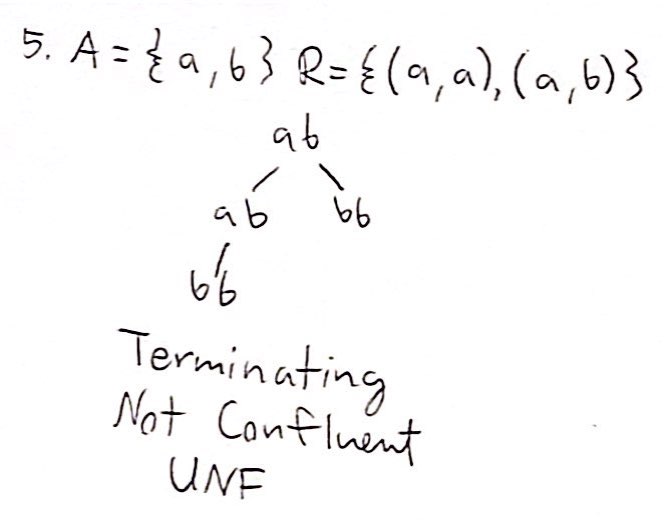 5. A = {a,b} R={(a,a),(a,b)}
ab
ab bb
bb
Terminating
Not Confluent
UNF